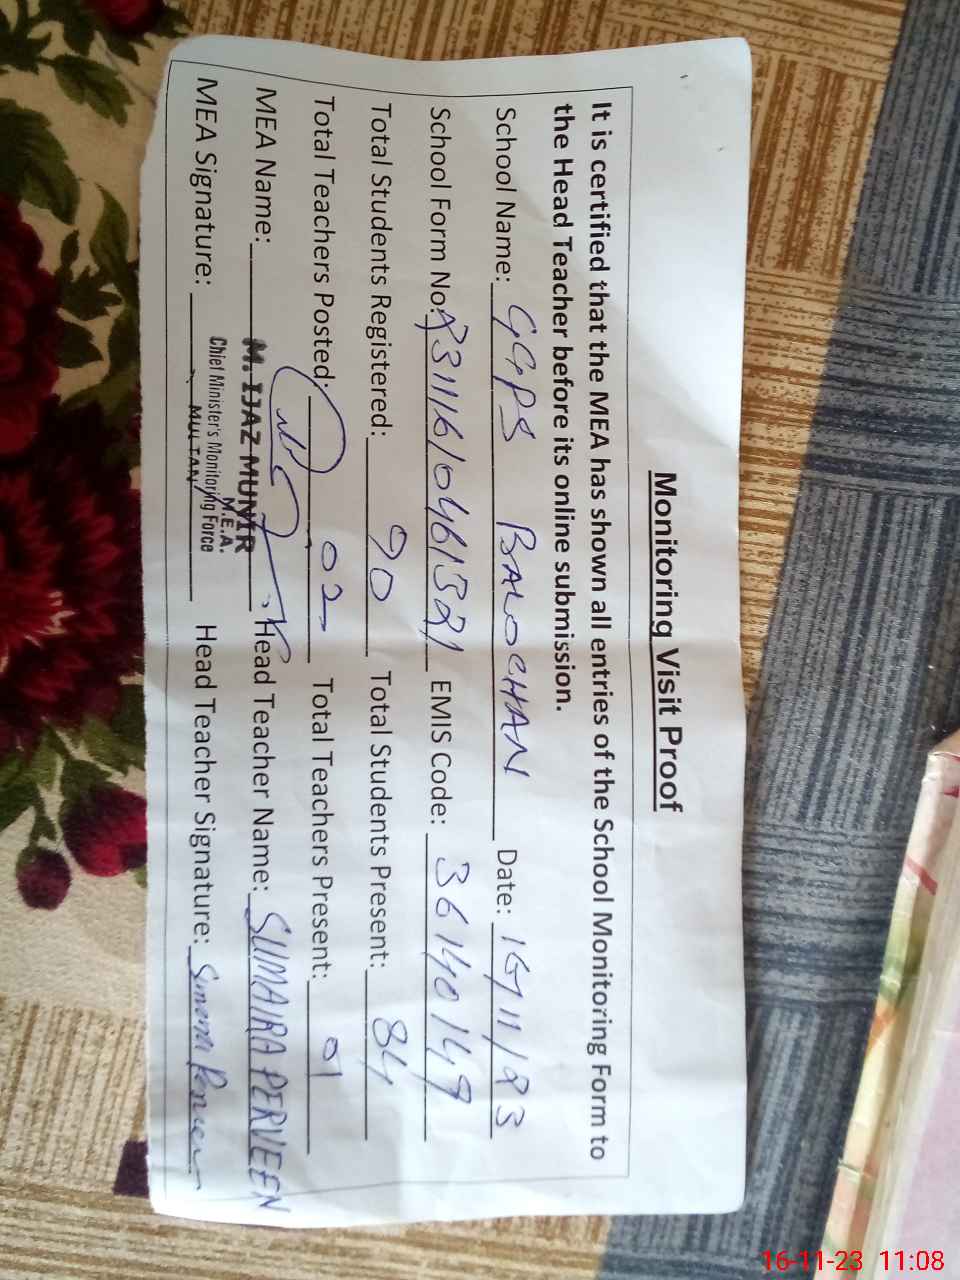 Monitoring Visit Proof
It is certified that the MEA has shown all entries of the School Monitoring Form to
the Head Teacher before its online submission.
School Name: GGPS BALOCHAN Date: 16/11/23
School Form No: EMIS Code: 36140149
Total Students Registered: 90 Total Students Present: 84
Total Teachers Posted: 02 Total Teachers Present: 01
MEA Name: M. IJAZ MUNIR Head Teacher Name: SUMAIRA PERVEEN
M.E.A.
Chief Minister's Monitoring Force
MEA Signature: MULTAN Head Teacher Signature:
16-11-23 11:08